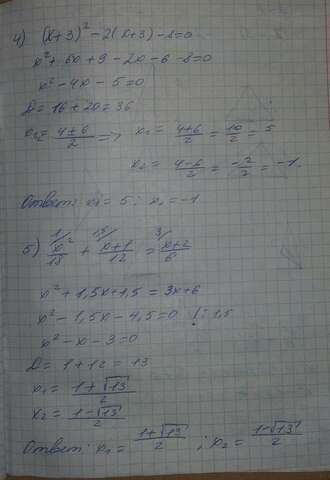 4) (x+3)² - 2(x+3) - 8 = 0
x² + 6x + 9 - 2x - 6 - 8 = 0
x² - 4x - 5 = 0
D = 16 + 20 = 36
x₁,₂ = (4 ± 6)/2 => x₁ = (4+6)/2 = 10/2 = 5
x₂ = (4-6)/2 = -2/2 = -1.
Ответ: x₁ = 5 ; x₂ = -1
5) x²/18 + (x+1)/12 = (x+2)/6
x² + 1,5x + 1,5 = 3x + 6
x² - 1,5x - 4,5 = 0 | : 1,5
x² - x - 3 = 0
D = 1 + 12 = 13
x₁ = (1 + √13)/2
x₂ = (1 - √13)/2
Ответ: x₁ = (1+√13)/2 ; x₂ = (1-√13)/2